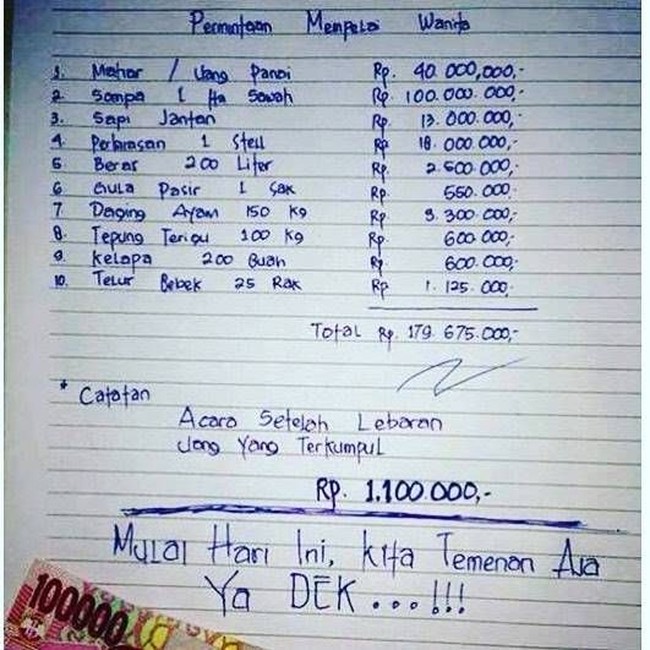 Permintaan Mempelai Wanita
1. Mahar / Uang Panai Rp. 40.000,000,-
2 Sompa 1 Ha Sawah Rp. 100.000.000,-
3. Sapi Jantan Rp. 13.000.000,-
4. Perhiasan 1 Stell Rp 18.000.000,-
5. Beras 200 Liter Rp. 2.500.000,-
6 Gula Pasir 1 Sak Rp 550.000.-
7 Daging Ayam 150 Kg Rp 3.300.000,-
8. Tepung Terigu 100 Kg Rp. 600.000,-
9. Kelapa 200 Buah Rp. 600.000,-
10. Telur Bebek 25 Rak Rp 1.125.000,
Total Rp. 179.675.000,-
* Catatan
Acara Setelah Lebaran
Uang Yang Terkumpul
Rp. 1.100.000,-
Mulai Hari Ini, Kita Temenan Aja
Ya DEK...!!!
100000